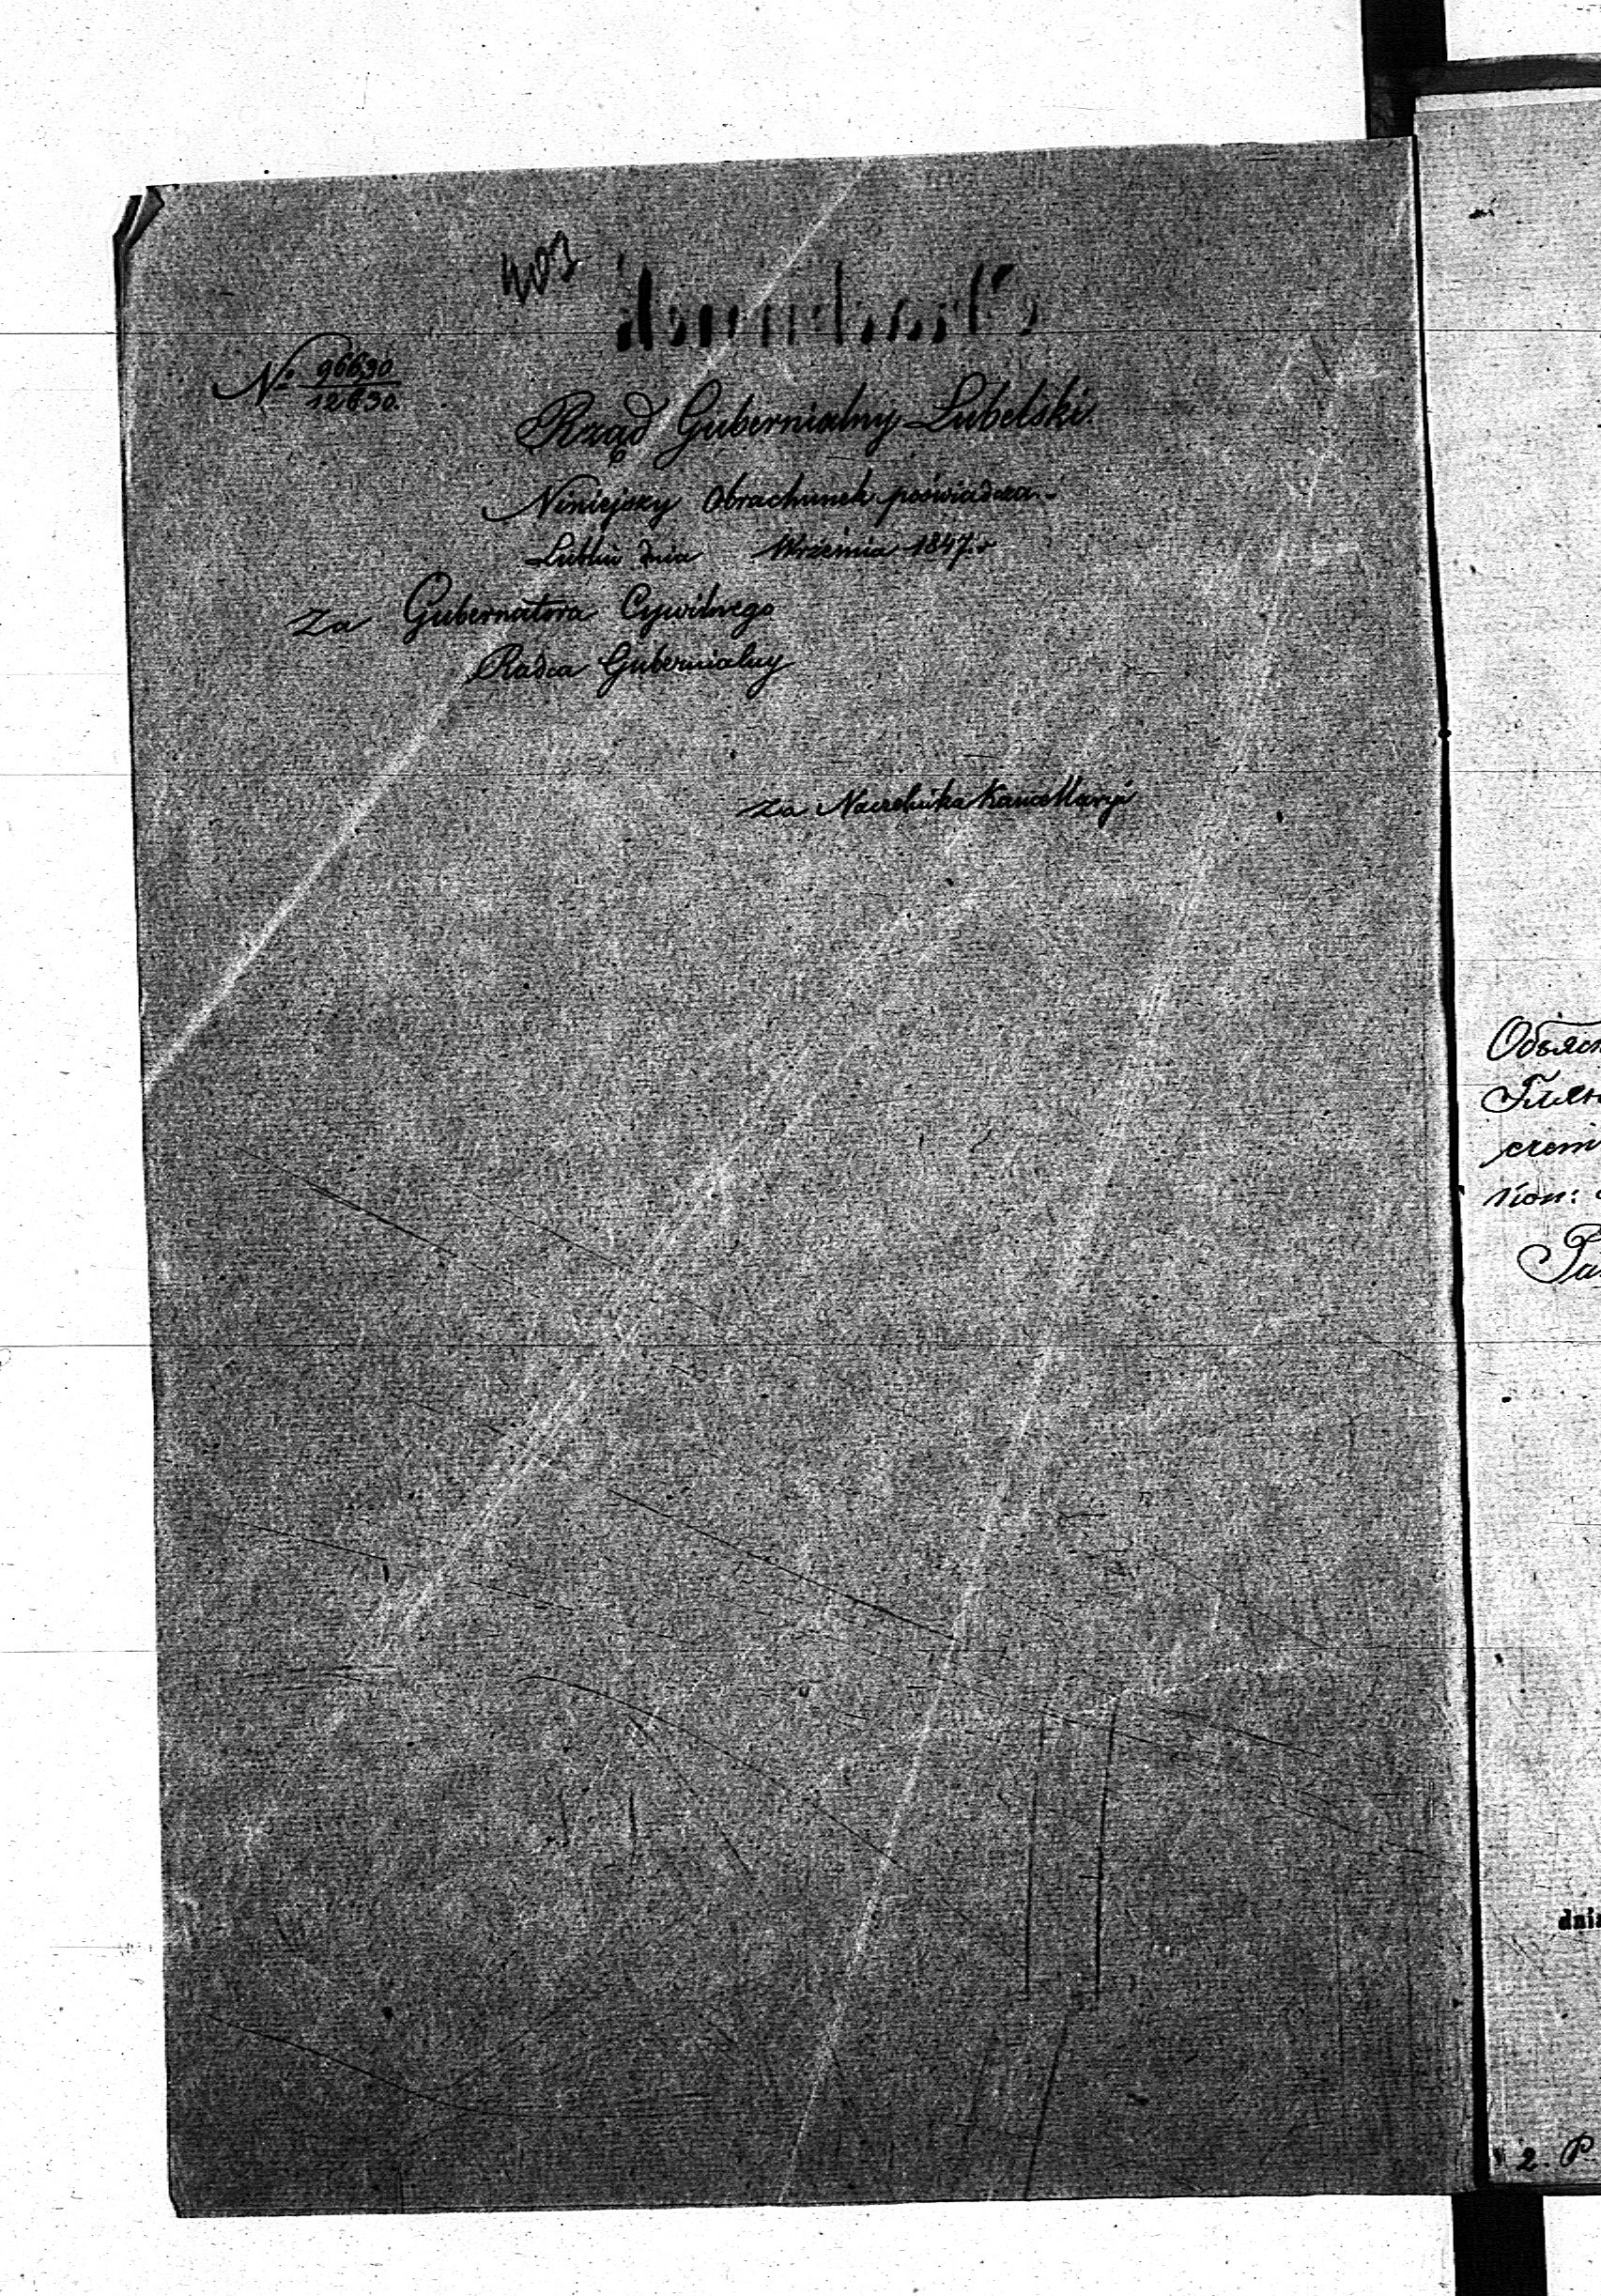 403
No 96690
12630.
Rząd Gubernialny Lubelski.
Niniejszy Obrachunek poświadcza.
Lublin dnia Września 1847. r
Za Gubernatora Cywilnego
Radca Gubernialny
Za Naczelnika Kancellaryi
Объясн
стент
Ра
dnia
2. P.